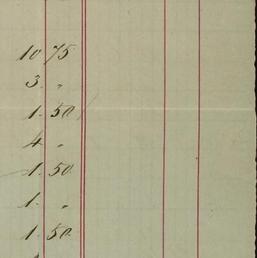 10 75
3 "
1. 50
4 "
1. 50
1. "
1. 50